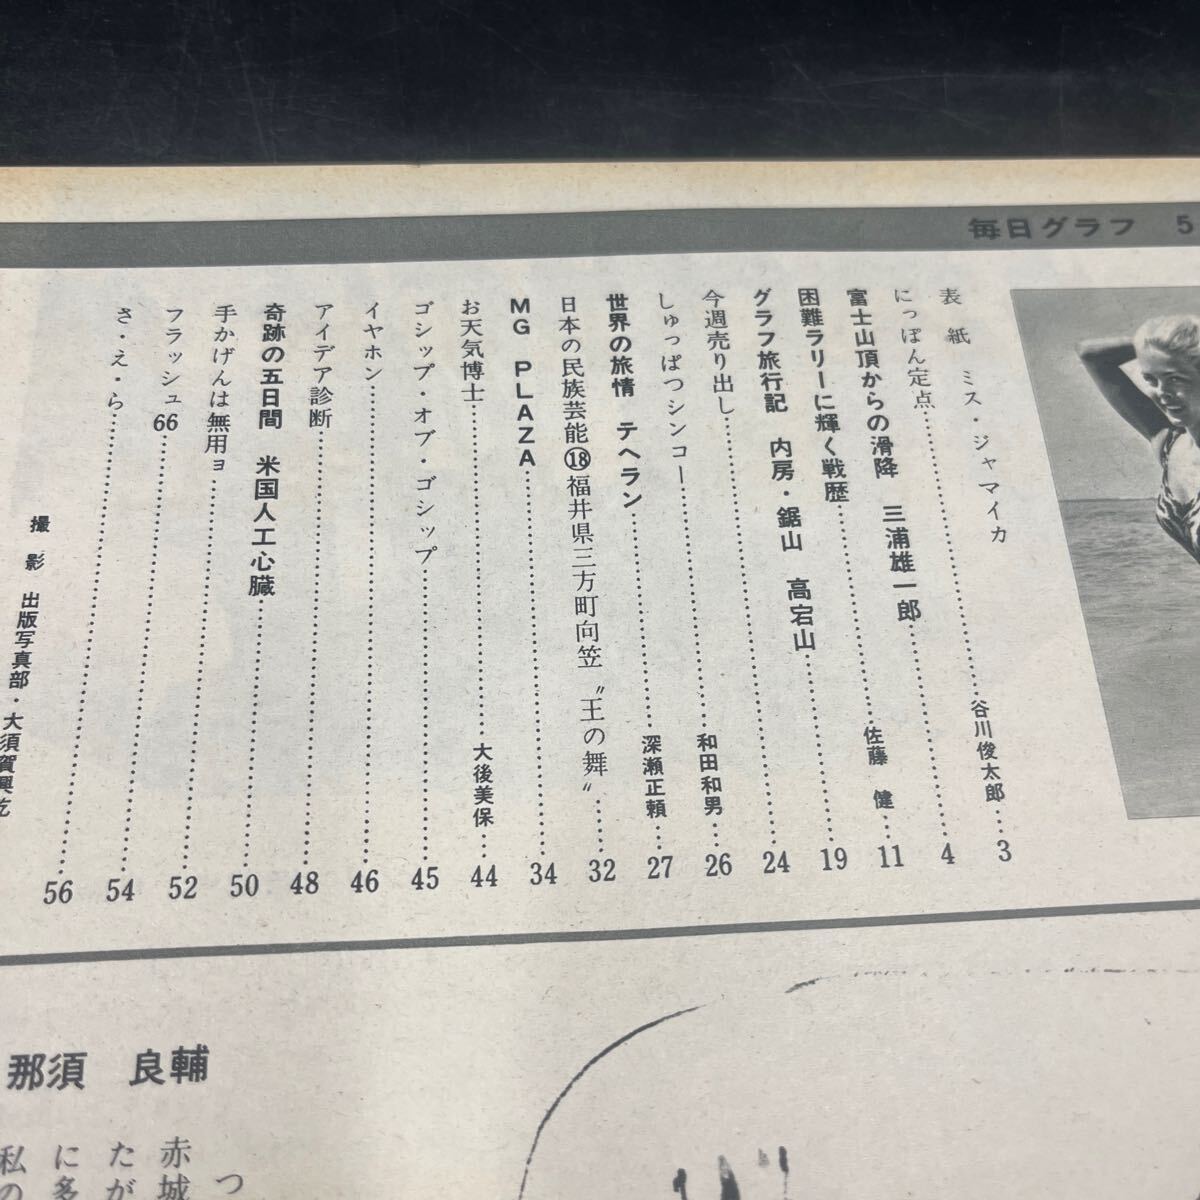 毎日グラフ 5
表紙 ミス・ジャマイカ
にっぽん定点……谷川俊太郎…3
富士山頂からの滑降 三浦雄一郎……4
困難ラリーに輝く戦歴……佐藤 健…11
グラフ旅行記 内房・鋸山 高宕山……19
今週売り出し……24
しゅっぱつシンコー……和田和男…26
世界の旅情 テヘラン……深瀬正頼…27
日本の民族芸能⑱福井県三方町向笠〝王の舞〟……32
MG PLAZA……34
お天気博士……大後美保…44
ゴシップ・オブ・ゴシップ……45
イヤホン……46
アイデア診断……48
奇跡の五日間 米国人工心臓……50
手かげんは無用ョ……52
フラッシュ66……54
さ・え・ら……56
撮影 出版写真部・大須賀興屹
那須 良輔
つ
赤城
たが
に多
私の